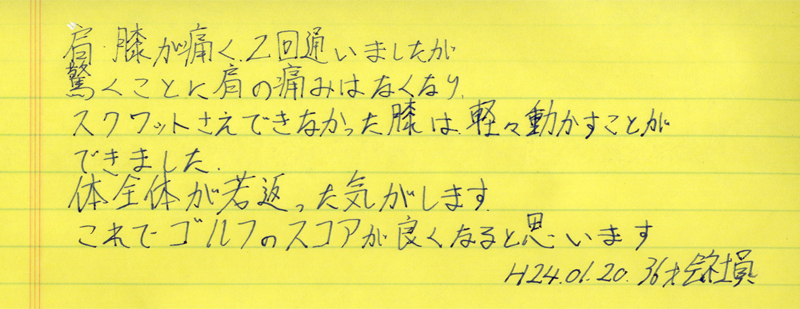 肩・膝が痛く、2回通いましたが
驚くことに肩の痛みはなくなり、
スクワットさえできなかった膝は、軽々動かすことが
できました。
体全体が若返った気がします。
これでゴルフのスコアが良くなると思います
H24.01.20. 36才会社員